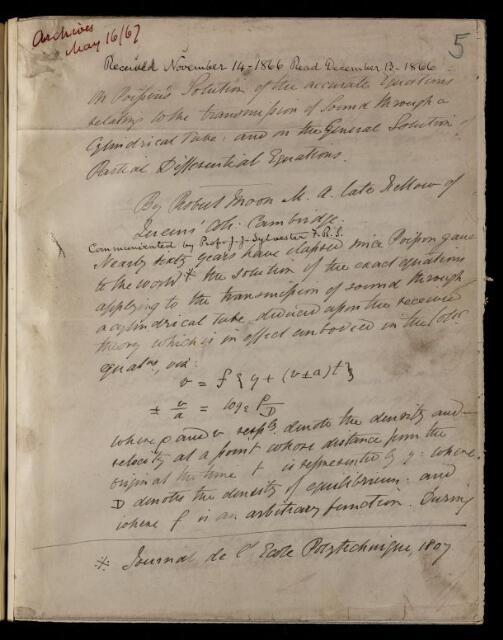 Archives
May 16/67
5
Received November 14 - 1866 Read December 13 - 1866 -
On Poisson's Solution of the accurate Equations
relating to the transmission of Sound through a
Cylindrical Tube: and on the General Solution of
Partial Differential Equations.
By Robert Moon M. A. late Fellow of
Queens' Coll. Cambridge.
Communicated by Prof. J. J. Sylvester F. R. S.
Nearly sixty years have elapsed since Poisson gave
to the world * the solution of the exact equations
applying to the transmission of sound through
a cylindrical tube, deduced upon the received
theory which is in effect embodied in the
equatns, viz:
v = f { y + (v ± a) t }
± v/a = log ε ρ/D
where ρ and v resply. denote the density and
velocity at a point whose distance from the
origin at the time t is represented by y: where
D denotes the density of equilibrium: and
where f is an arbitrary function. During
* Journal de l'Ecole Polytechnique, 1807